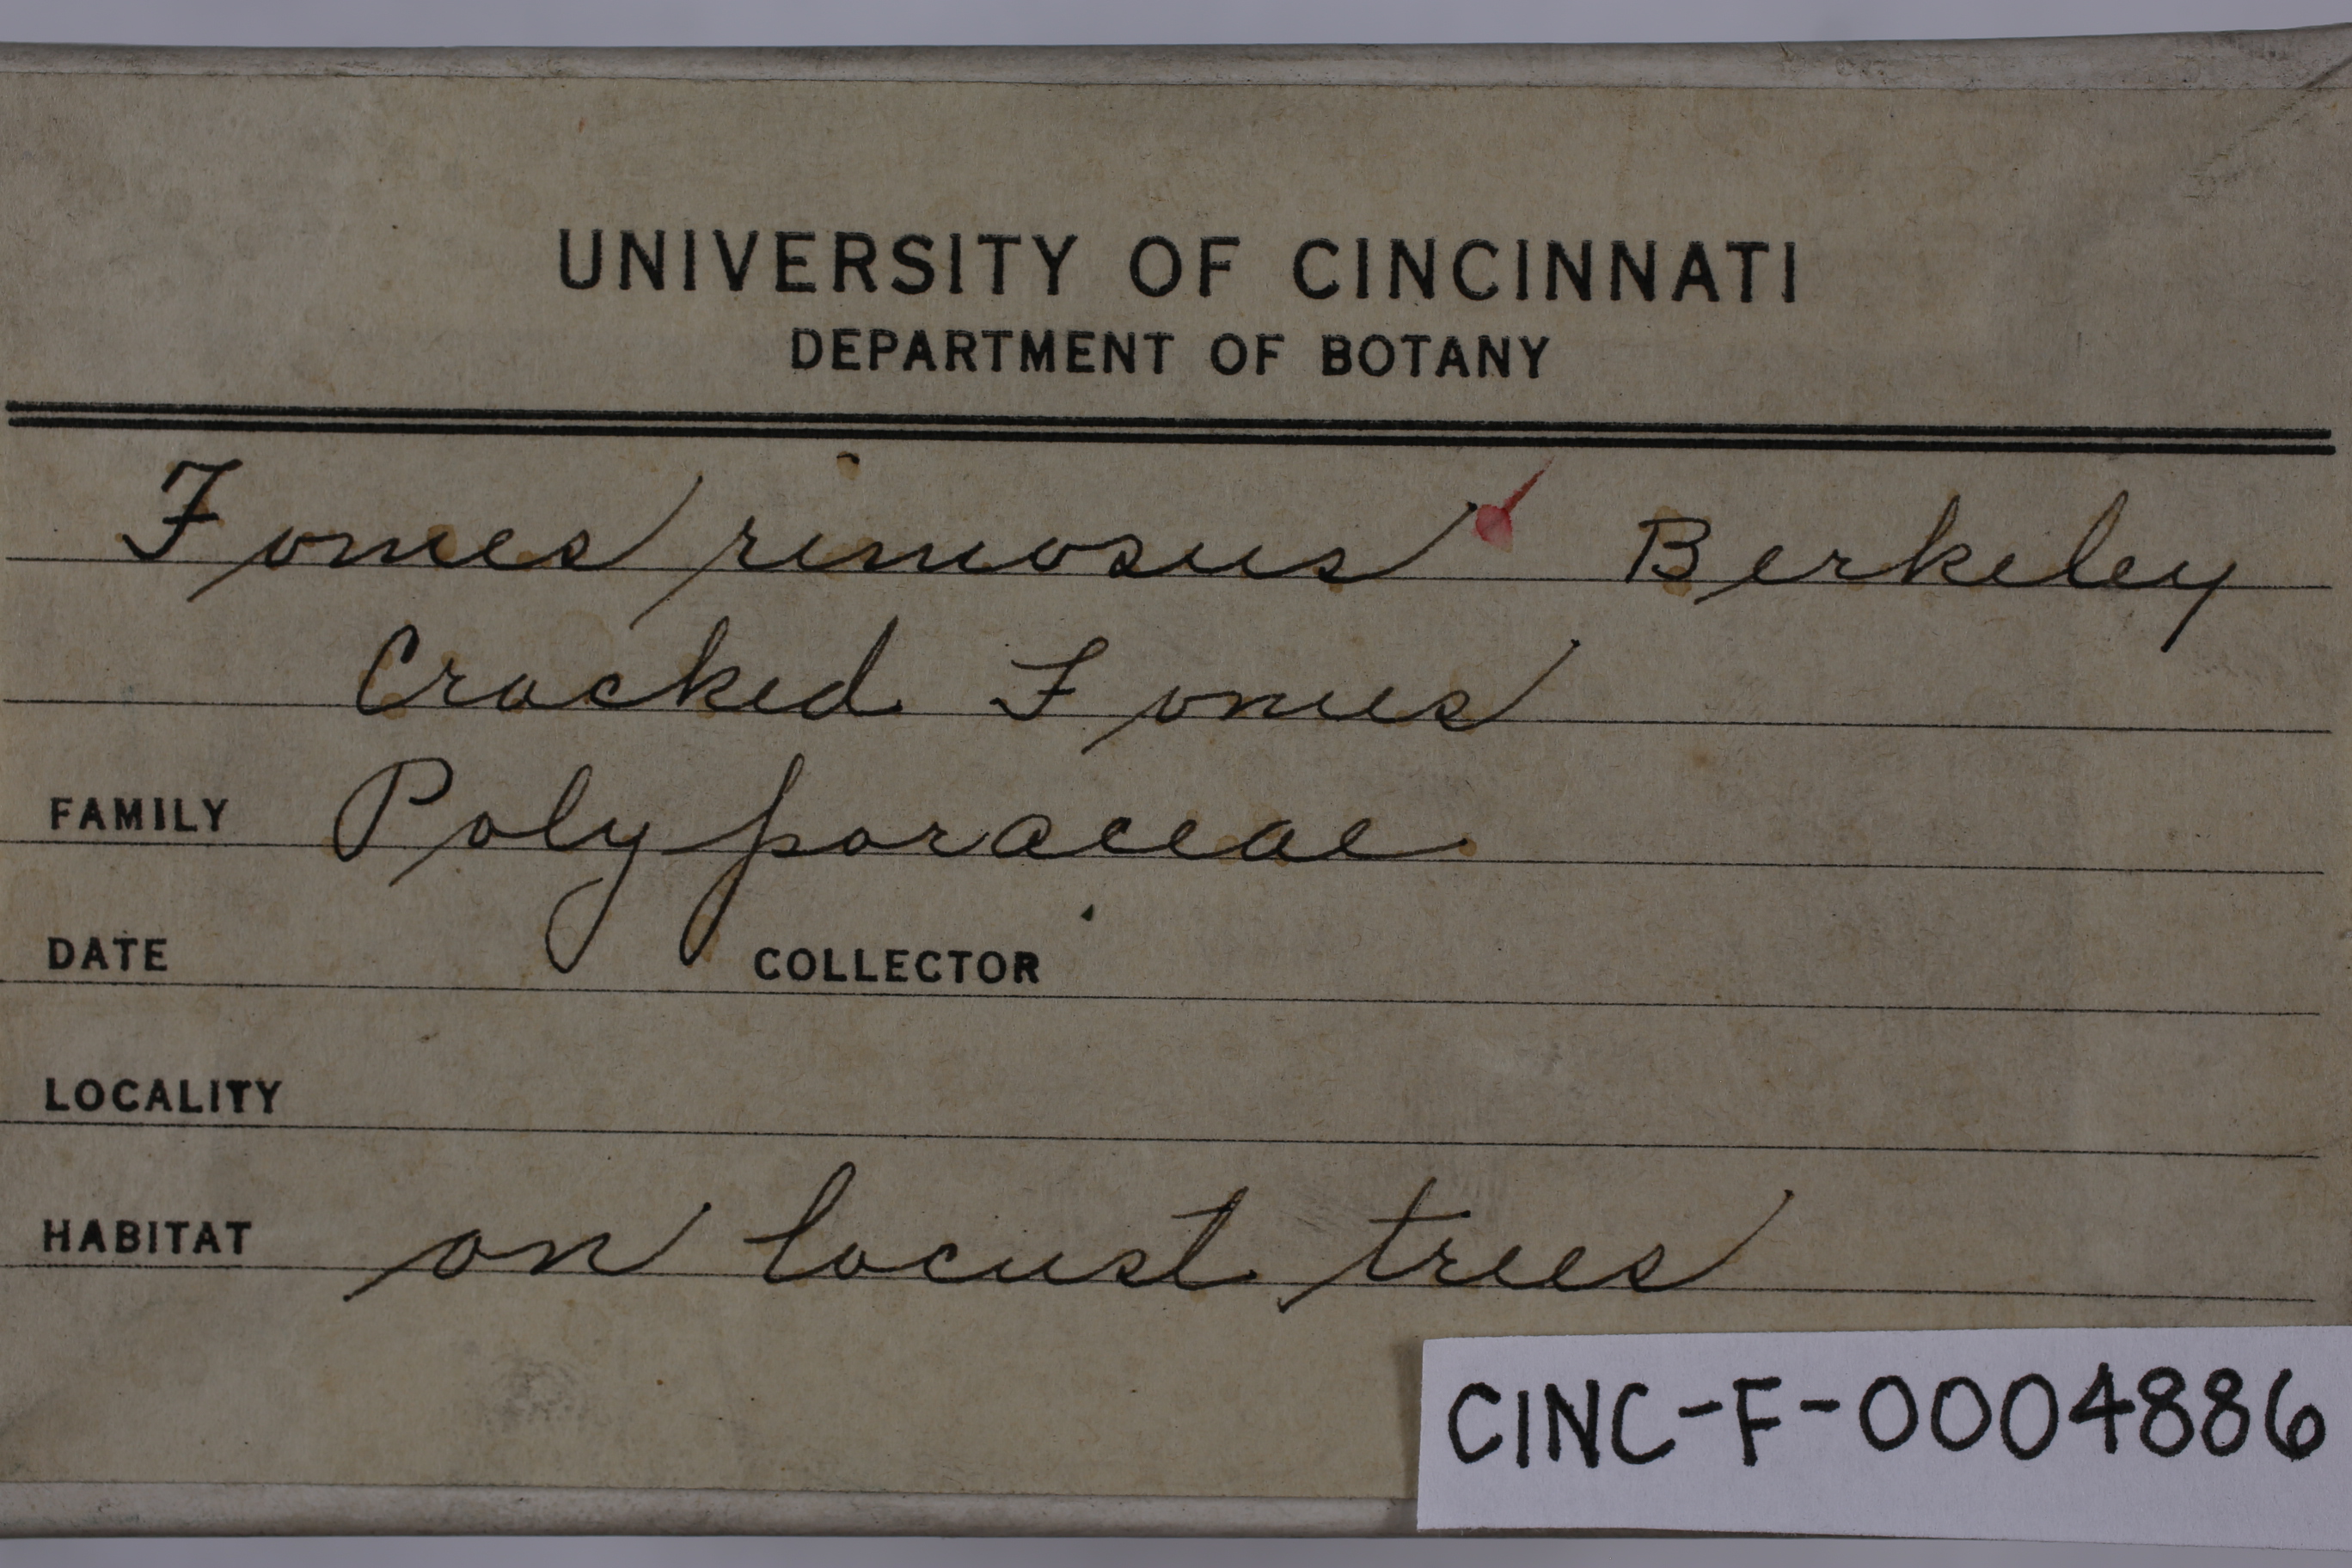 UNIVERSITY OF CINCINNATI
DEPARTMENT OF BOTANY
Fomes rimosus Berkeley
Cracked Fomes
FAMILY Polyporaceae
DATE COLLECTOR
LOCALITY
HABITAT on locust trees
CINC-F-0004886